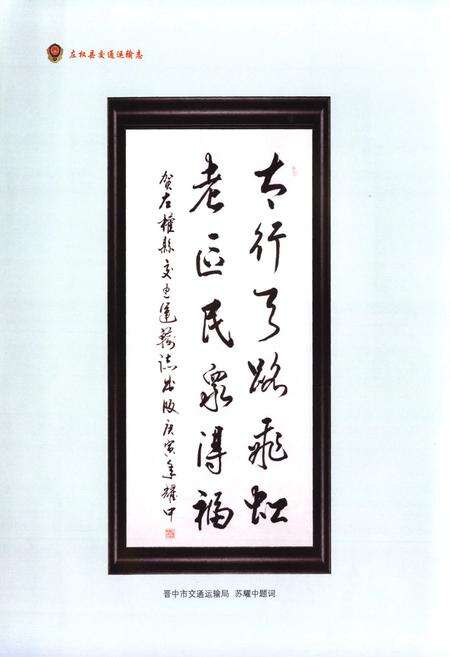 左权县交通运输志
太行天路飞虹
老区民众得福
贺左權縣交通運輸誌出版庚寅年耀中
晋中市交通运输局 苏耀中题词